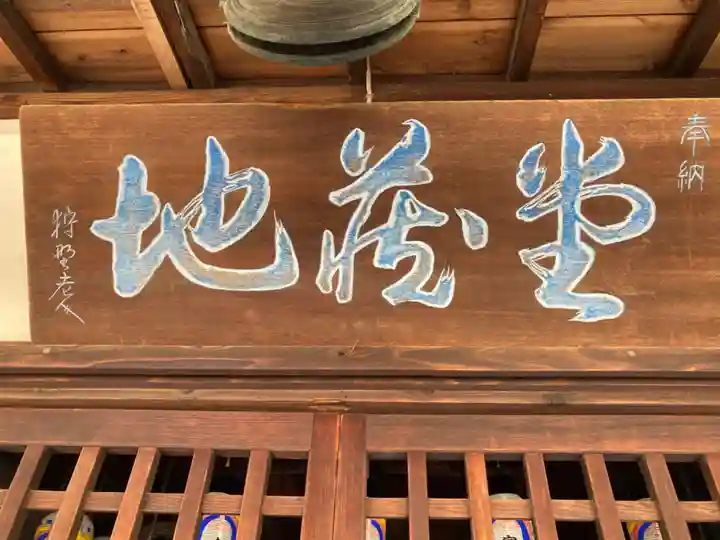 奉納
地蔵堂
狩野老人